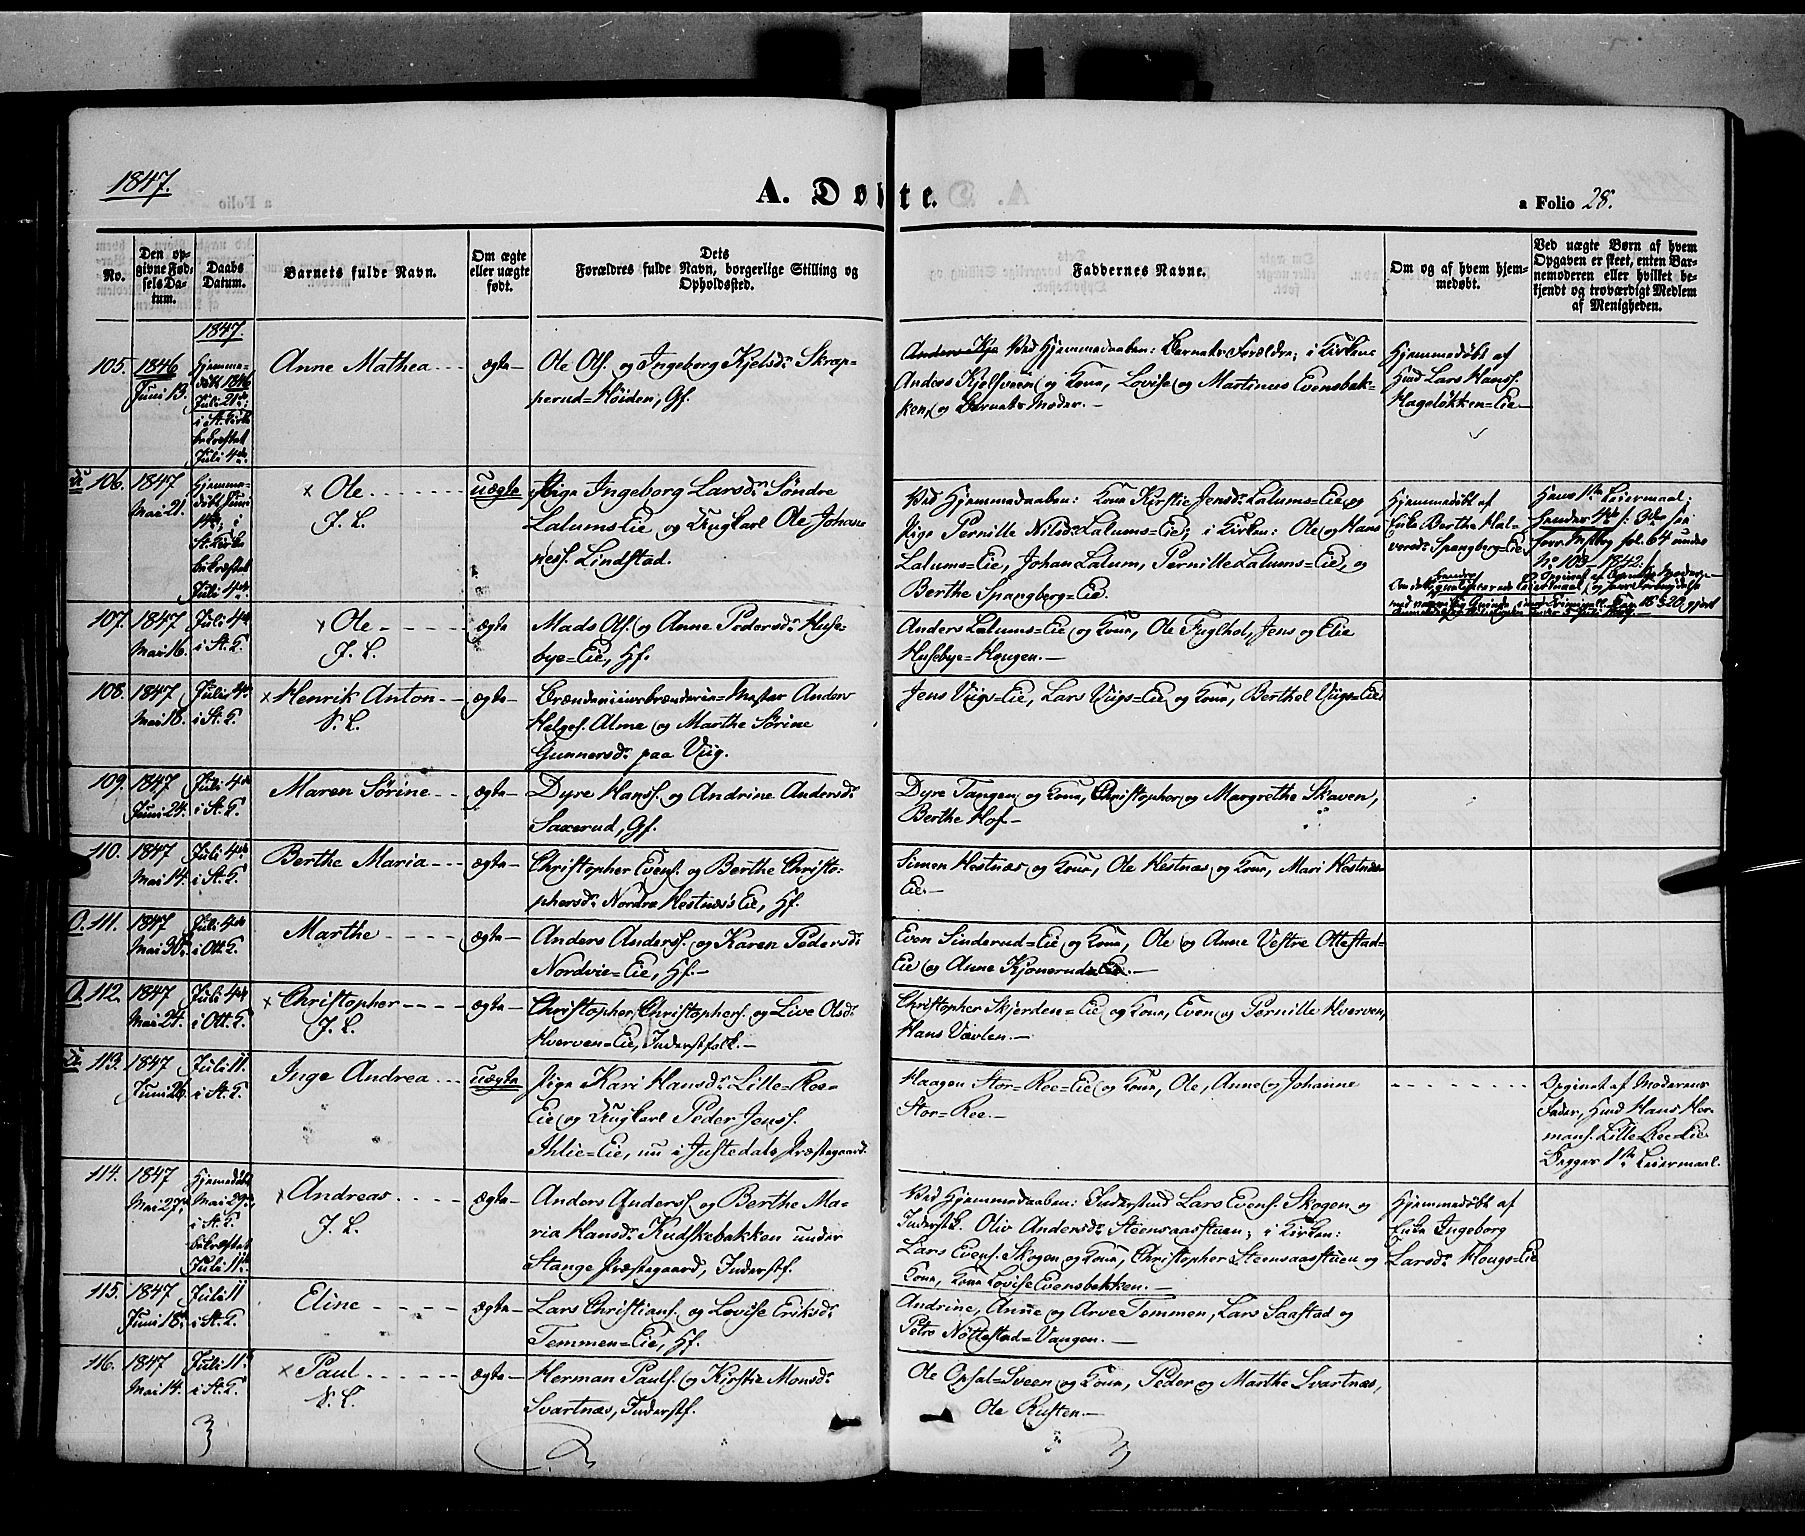 1847.
A. Døbte.
a Folio 28.
No.
Den opgivne Fødselsdatum.
Daabs Datum.
Barnets fulde Navn.
Om ægte eller uægte født.
Dets Forældres fulde Navn, borgerlige Stilling og Opholdssted.
Faddernes Navne.
Om og af hvem hjemmedøbt.
Ved uægte Børn af hvem Opgaven er skeet, enten Barnemoderen eller hvilket bekjendt og troværdigt Medlem af Menigheden.
1847.
105. 1846 Juni 13. Hjemmedøbt 1846 Juli 21de; i St. Kirke bekræftet Juli 4de
Anne Mathea - - ægte-
Ole Ols. og Ingeborg Kjelsdr Skrapperud=Høiden, Gf.
Ved Hjemmedaaben: Barnets Forældre; i Kirken:
Anders Kjelsveen og Kone, Lovise og Martinus Evensbakken, og Barnets Moder.-
Hjemmedøbt af
Hmd Lars Hanss.
Hageløkken=Eie-
106. 1847 Mai 21. Hjemmedøbt Juni 14de; i St. Kirke bekræftet Juli 4de
x Ole - - - - uægte
J. L.
Pige Ingeborg Larsdr Søndre
Lalums Eie og Ungkarl Ole Johanness. Lindstad.
Ved Hjemmedaaben: Kone Kirstie Jensdr Lalums=Eie og
Pige Pernille Nilsdr Lalums=Eie; i Kirken: Ole og Hans
Lalums=Eie, Johan Lalum, Pernille Lalums=Eie, og
Berthe Spangberg=Eie.
Hjemmedøbt af
Enke Berthe Halvorsdr Spangberg=Eie
Hans 1ste Leiermaal;
hendes 4de
fol. 64 under
No 103 - 1842.
107. 1847 Mai 16. Juli 4de i St. K.
x Ole - - - - ægte
J. L.
Mads Ols. og Anne Pedersdr Husebye=Eie, Hf.
Anders Lalums=Eie og Kone, Ole Fuglhol, Jens og Elie
Husebye=Hougen.-
108. 1847 Mai 18. Juli 4de i St. K.
x Henrik Anton - - ægte-
V. L.
Brændeviinsbrænderie=Mester Anders
Helges. Alme og Marthe Sørine
Gunnersdr paa Viig.
Jens Viigs=Eie, Lars Viigs=Eie og Kone, Berthel Viigs=Eie
109. 1847 Juni 24. Juli 4de i St. K.
Maren Sørine - - ægte-
Dyre Hanss. og Andrine Andersdr
Saxerud, Gf.
Dyre Tangen og Kone, Christopher og Margrethe Skaven,
Berthe Hof-
110. 1847 Mai 14. Juli 4de i St. K.
Berthe Maria - - ægte-
Christopher Evens. og Berthe Christophersdr Nordre Hestnæs's Eie, Hf.
Simen Hestnæs og Kone, Ole Hestnæs og Kone, Mari Hestnæs
Eie-
O. 111. 1847 Mai 30te Juli 4de i Ott. K.
Marthe - - - - ægte-
Anders Anderss. og Karen Pedersdr
Nordvie=Eie, Hf.-
Even Sinderud=Eie og Kone, Ole og Anne Vestre Ottestad=
Eie og Anne Kjonerud=Eie.-
O. 112. 1847 Mai 24. Juli 4de i Ott. K.
x Christopher - - - ægte-
J. L.
Christopher Christophers. og Live Olsdr
Hverven=Eie, Inderstfolk.-
Christopher Skjerden=Eie og Kone, Even og Pernille Hverven,
Hans Vævlen.-
113. 1847 Juni 26. Juli 11. i St. K.
Inge Andrea - - uægte
Pige Kari Hansdr Lille=Roe=
Eie og Ungkarl Peder Jenss.
Ihlie=Eie, nu i Justedals Præstegaard.
Haagen Stor=Roe=Eie og Kone, Ole, Anne og Johanne
Stor=Roe.-
- - - - - - -
Opgivet af Moderens
Fader, Hmd Hans Hermans. Lille Roe=Eie
Begges 1ste Leiermaal.
114. 1847 Mai 27de Hjemmedøbt Mai 29de, i St. K. bekræftet Juli 11te
x Andreas - - - - ægte-
J. L.
Anders Anderss. og Berthe Maria Hansdr Kudskebakken under
Stange Præstegaard, Inderstf.
Ved Hjemmedaaben: Inderstmd Lars Evens. Skogen og
Inderstk. Oliv Andersdr Steensaasstuen; i Kirken:
Lars Evens. Skogen og Kone, Christopher Steensaasstuen og
Kone, Kone Lovise Evensbakken.-
Hjemmedøbt af
Enke Ingeborg
Larsdr Hougs=Eie
115. 1847 Juni 18de Juli 11 i St. K.
Eline - - - - ægte-
Lars Christians. og Lovise Eriksdr
Temmen=Eie, Hf.
Andrine, Anne og Arve Temmen, Lars Saastad og
Petro Nøttestad=Vangen.-
116. 1847 Mai 14. Juli 11te i St. K.
x Paul - - - - ægte-
V. L.
Herman Pauls. og Kirstie Monsdr
Svartnæs, Inderstf.
Ole Opsal=Sveen og Kone, Peder og Marthe Svartnæs,
Ole Rusten.-